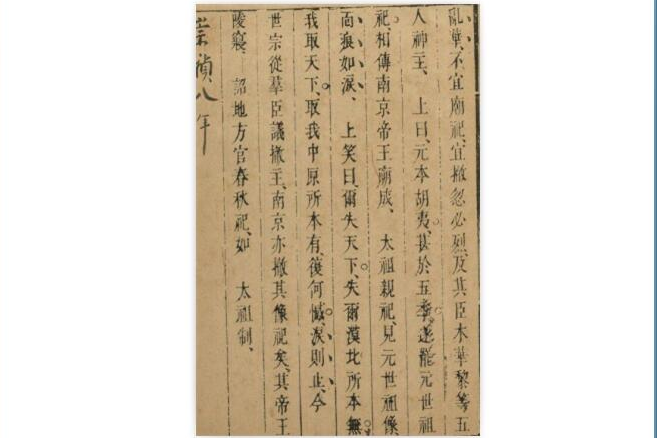 亂華、不宜廟祀、宜撤忽必烈、及其臣木華黎等五
人神主、上曰、元本胡夷、甚於五季、遂罷元世祖
祀、相傳南京帝王廟成、太祖親祀、見元世祖像、
面痕如淚、上笑曰、爾失天下、失爾漠北所本無、
我取天下、取我中原所本有、復何憾、淚則止、今
世宗從羣臣議撤主、南京亦撤其像祀矣、其帝王
陵寢、詔地方官春秋祀、如太祖制、
崇禎八年